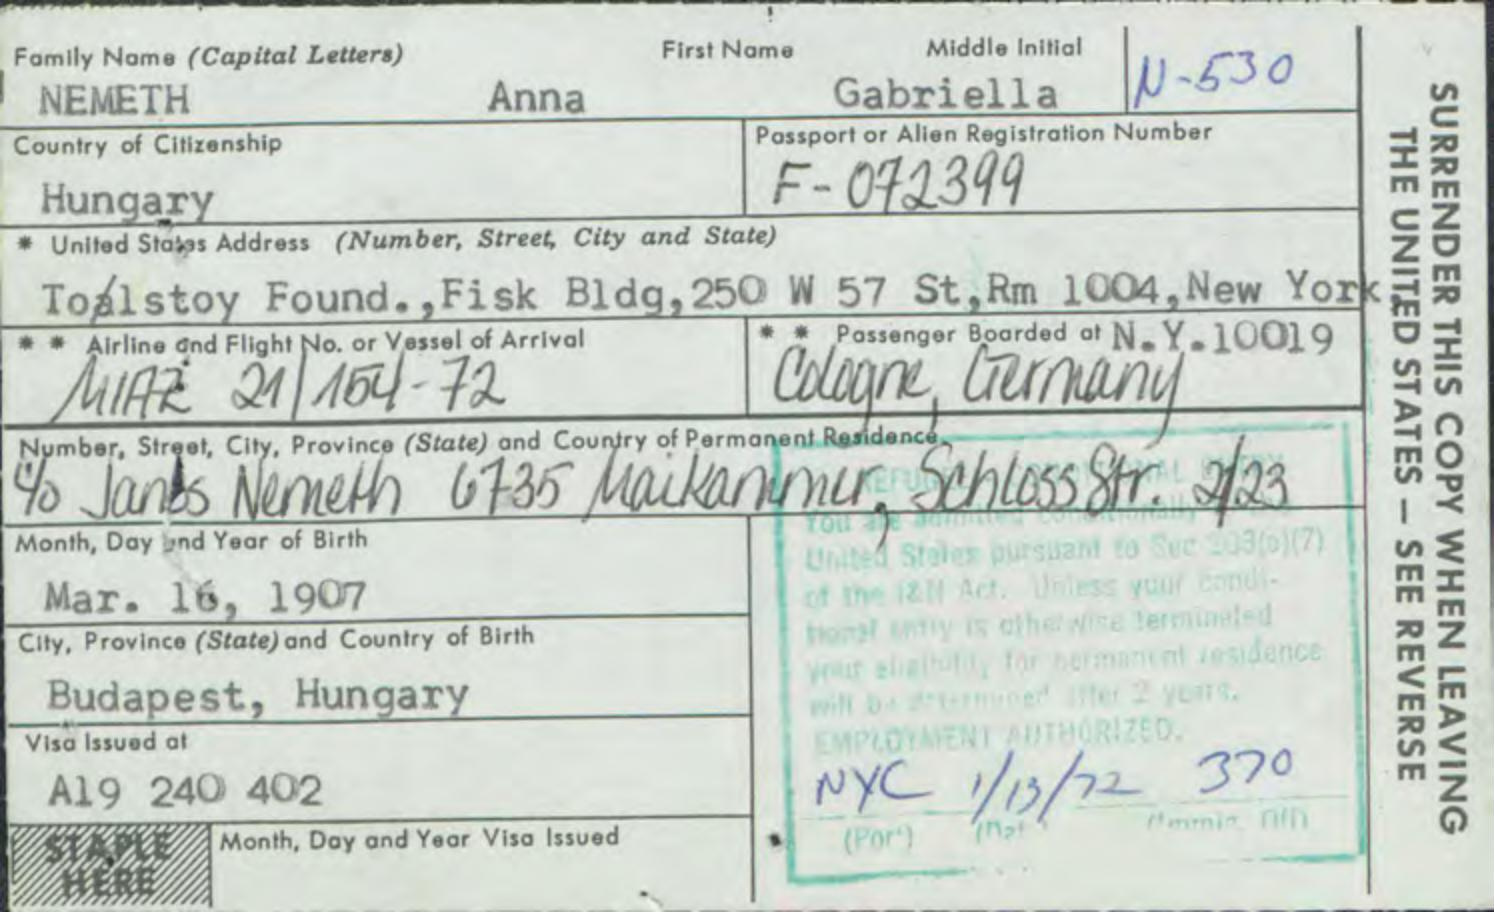 Family Name (Capital Letters) First Name Middle Initial
NEMETH Anna Gabriella N-530
Country of Citizenship Passport or Alien Registration Number
Hungary F-072399
* United States Address (Number, Street, City and State)
Toalstoy Found.,Fisk Bldg,250 W 57 St,Rm 1004,New York,
* * Airline and Flight No. or Vessel of Arrival * * Passenger Boarded at N.Y.10019
21/154-72 Cologne, Germany
Number, Street, City, Province (State) and Country of Permanent Residence
c/o Nemeth 6735 Maikammer, Schloss Str. 2/23
Month, Day and Year of Birth
Mar. 16, 1907
City, Province (State) and Country of Birth
Budapest, Hungary
Visa Issued at
A19 240 402
STAPLE HERE
Month, Day and Year Visa Issued
REFUGEE - CONDITIONAL ENTRY
You are admitted conditionally
United States pursuant to Sec 203(a)(7)
of the I&N Act. Unless your condi-
tional entry is otherwise terminated
your eligibility for permanent residence
will be determined after 2 years.
EMPLOYMENT AUTHORIZED.
NYC 1/13/72 370
(Port)
SURRENDER THIS COPY WHEN LEAVING
THE UNITED STATES — SEE REVERSE